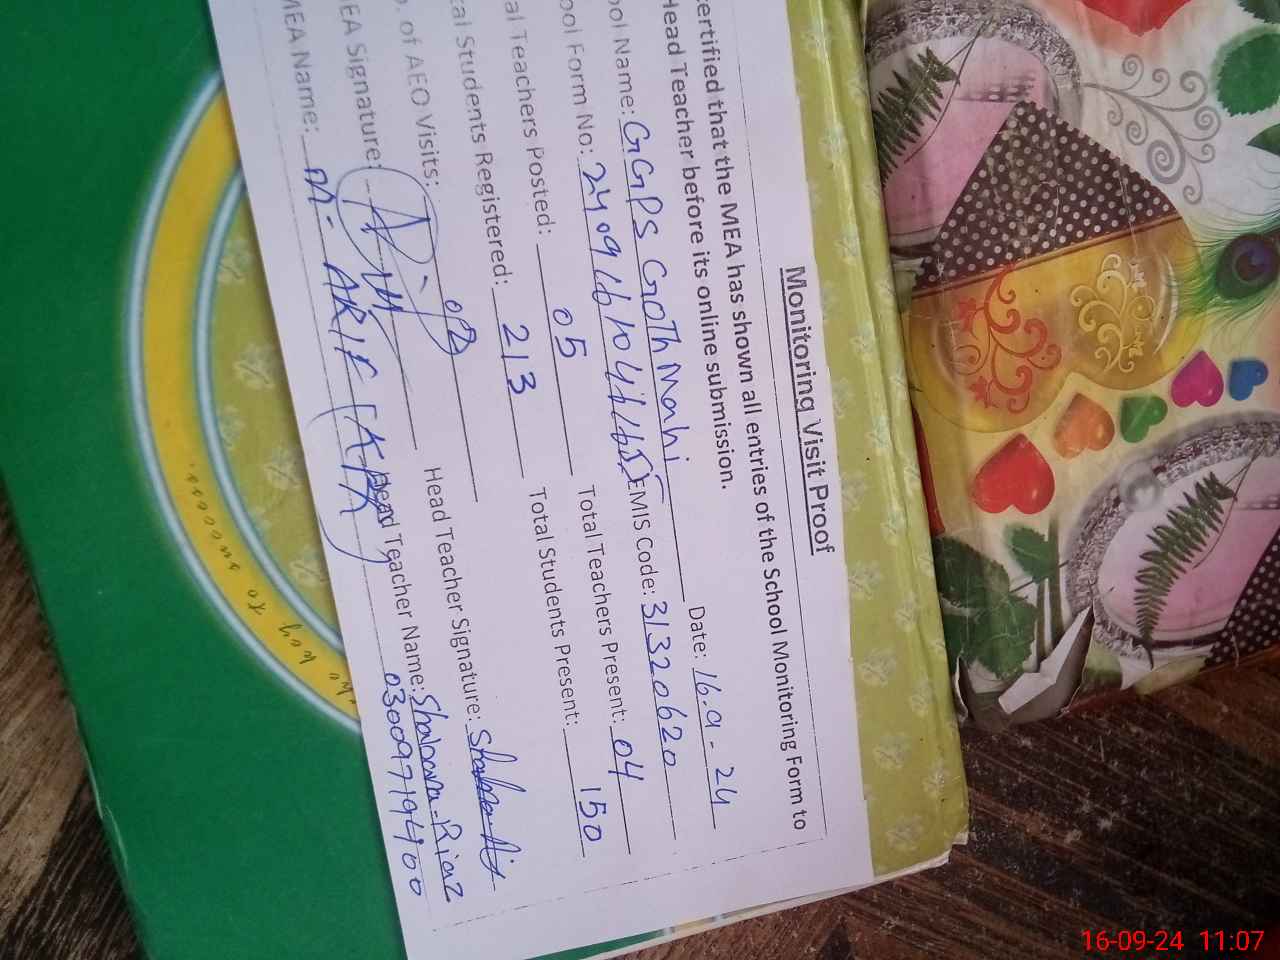 Monitoring Visit Proof
ertified that the MEA has shown all entries of the School Monitoring Form to
Head Teacher before its online submission.
ool Name: GGPS Goth Mahi Date: 16.9-24
ool Form No: EMIS Code: 31320620
al Teachers Posted: 05 Total Teachers Present: 04
al Students Registered: 213 Total Students Present: 150
. of AEO Visits: 02
EA Signature: Head Teacher Signature:
MEA Name: M. ARIF Head Teacher Name: Shabana Riaz
03009719400
to success.
16-09-24 11:07